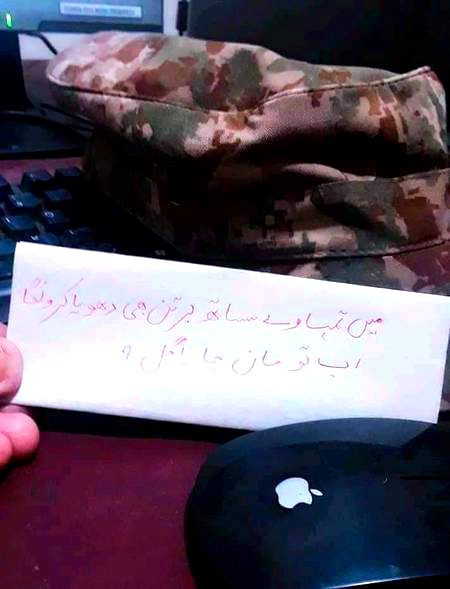 میں تمہارے ساتھ برتن بھی دھویا کرونگا
اب تو مان جا پاگل ؟